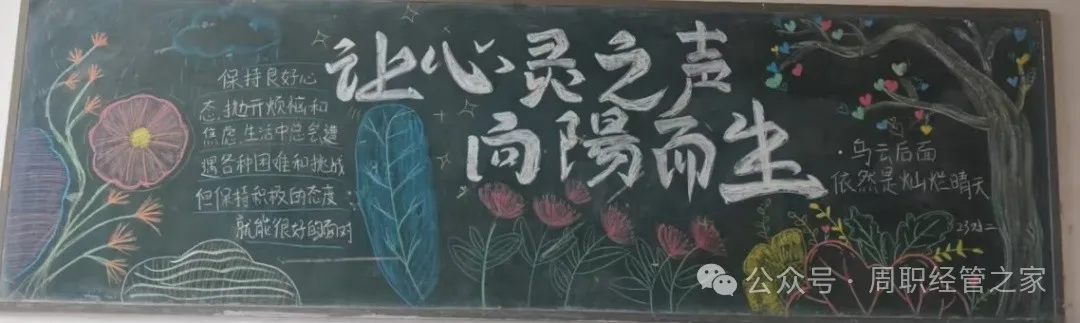 让心灵之声
向陽而生
保持良好心
态,抛开烦恼和
焦虑,生活中总会遭
遇各种困难和挑战
但保持积极的态度
就能很好的面对
·乌云后面
依然是灿烂晴天
公众号·周职经管之家